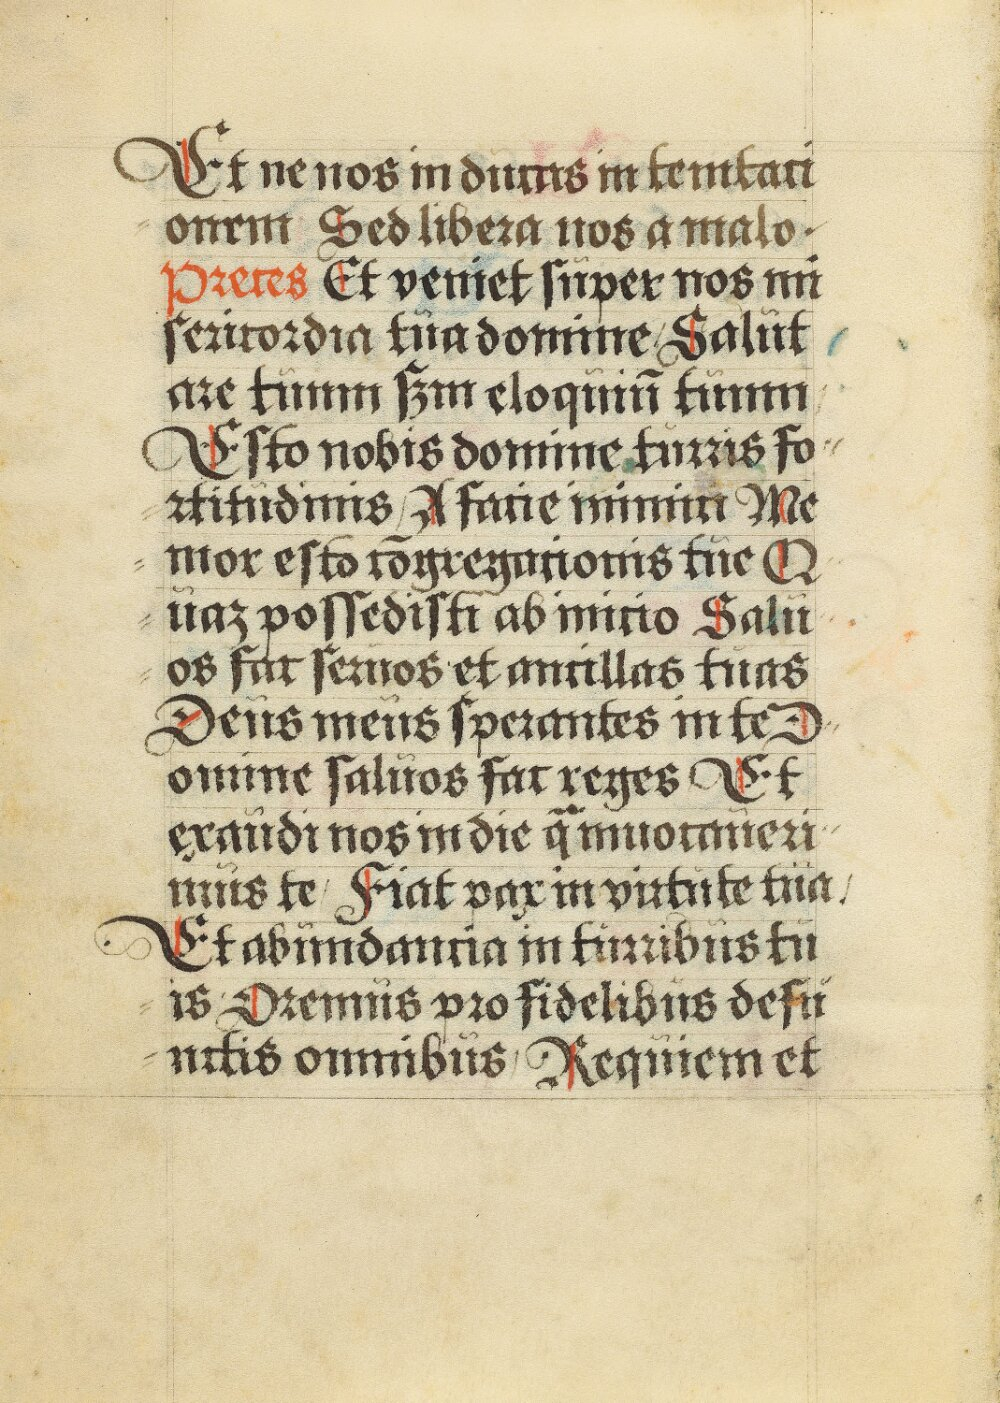 Et ne nos inducas in temtati
onem Sed libera nos a malo.
Preces Et veniet super nos mi
sericordia tua domine Salut
are tuum sʒm eloquiū tuum
Esto nobis domine turris fo
rtitudinis A facie inimici Me
mor esto cōgregationis tue Q
uaʒ possedisti ab initio Salu
os fac seruos et ancillas tuas
Deus meus sperantes in te D
omine saluos fac reges Et
exaudi nos in die qͣ inuocaueri
mus te Fiat pax in virtute tua
Et abundantia in turribus tu
is Oremus pro fidelibus defu
nctis omnibus Requiem et